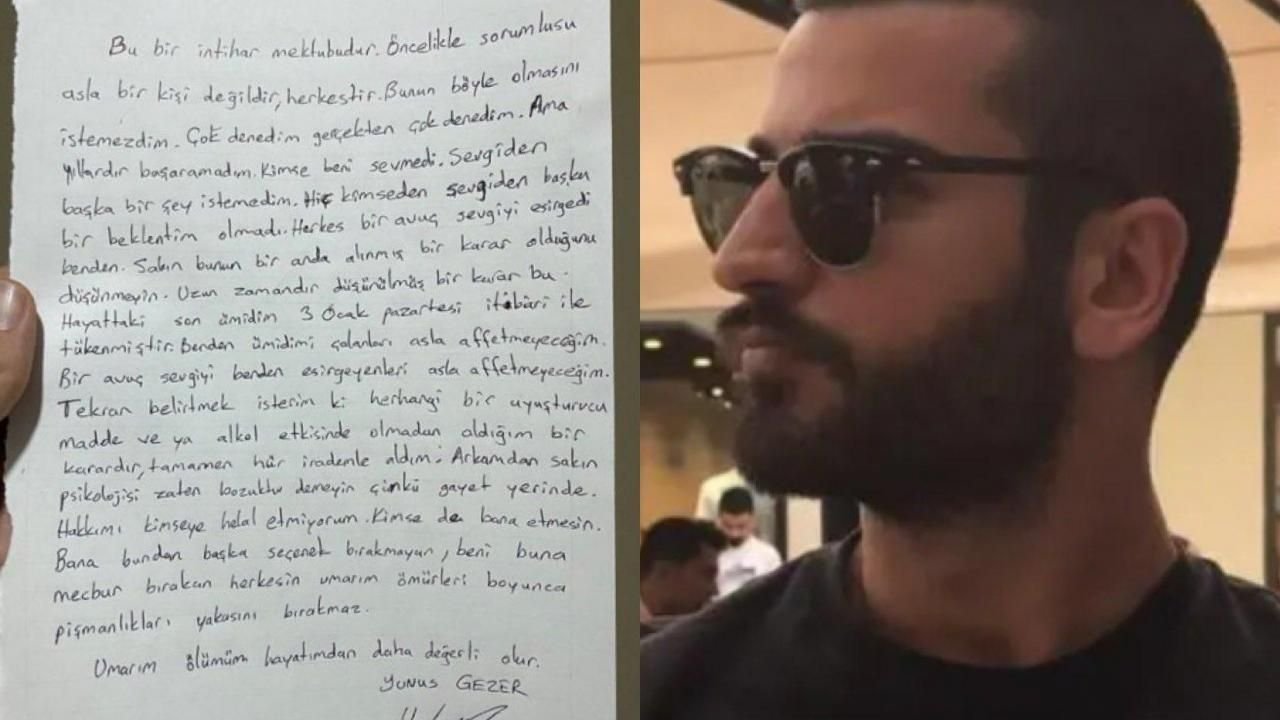 Bu bir intihar mektubudur. Öncelikle sorumlusu
asla bir kişi değildir, herkestir. Bunun böyle olmasını
istemezdim. Çok denedim gerçekten çok denedim. Ama
yıllardır başaramadım. Kimse beni sevmedi. Sevgiden
başka bir şey istemedim. Hiç kimseden sevgiden başka
bir beklentim olmadı. Herkes bir avuç sevgiyi esirgedi
benden. Sakın bunun bir anda alınmış bir karar olduğunu
düşünmeyin. Uzun zamandır düşünülmüş bir karar bu.
Hayattaki son ümidim 3 Ocak pazartesi itibari ile
tükenmiştir. Benden ümidimi çalanları asla affetmeyeceğim.
Bir avuç sevgiyi benden esirgeyenleri asla affetmeyeceğim.
Tekran belirtmek isterim ki herhangi bir uyuşturucu
madde ve ya alkol etkisinde olmadan aldığım bir
karardır, tamamen hür iradenle aldım. Arkamdan sakın
psikolojisi zaten bozuktu demeyin çünkü gayet yerinde.
Hakkımı kimseye helal etmiyorum. Kimse de bana etmesin.
Bana bundan başka seçenek bırakmayan, beni buna
mecbur bırakan herkesin umarım ömürleri boyunca
pişmanlıkları yakasını bırakmaz.
Umarım ölümüm hayatımdan daha değerli olur.
YUNUS GEZER